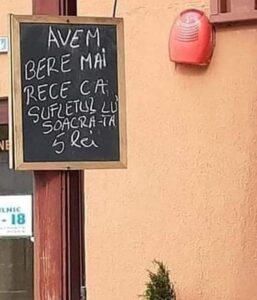 AVEM
BERE MAI
RECE CA
SUFLETUL LU
SOACRĂ-TA
5 lei
LNIC
- 18